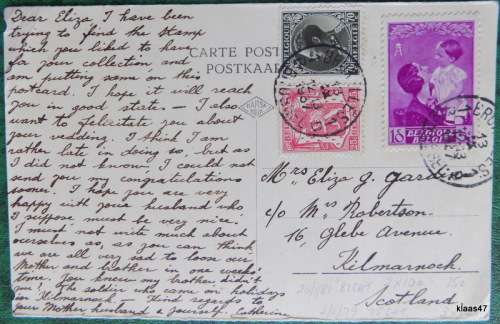 Dear Eliza, I have been
trying to find the stamp
which you liked to have
for your collection and
am putting same on this
postcard. I hope it will reach
you in good state. — I also
want to felicitate you about
your wedding. I think I am
rather late in doing so, but as
I did not know, I could not
send you my congratulations
sooner. I hope you are very
happy with your husband who
I suppose must be very nice.
I must not write much about
ourselves as, as you can think
we are all very sad to loose our
Mother and brother in one weeks'
time. You knew my brother didn't
you? The soldier who came on holidays
in Kilmarnock — Kind regards to
your Mother husband & yourself. Catherine
CARTE POST
POSTKAAR
BELGIQUE
BELGIË
BELGIQUE
BELGIË
Mrs Eliza G.
c/o Mrs Robertson.
16, Glebe Avenue.
Kilmarnock
Scotland
klaas47